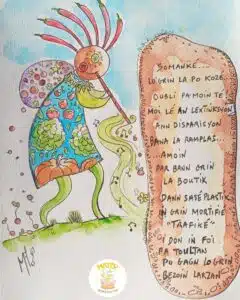 SOMANKE...
LO GRIN LA PO KOZE
OUBLI PA MOIN TE
MOI LÉ AN L'EXTINKSYON
ANN DISPARISYON
BANA LA RAMPLAS...
AMOIN
PAR BANN GRIN
LA BOUTIK
DANN SASÉ PLASTIK
IN GRIN MORTIFIÉ
"TRAFIKÉ"
I DON IN FOI
PA TOULTAN
PO GAGN LO GRIN
BEZOIN LARZAN